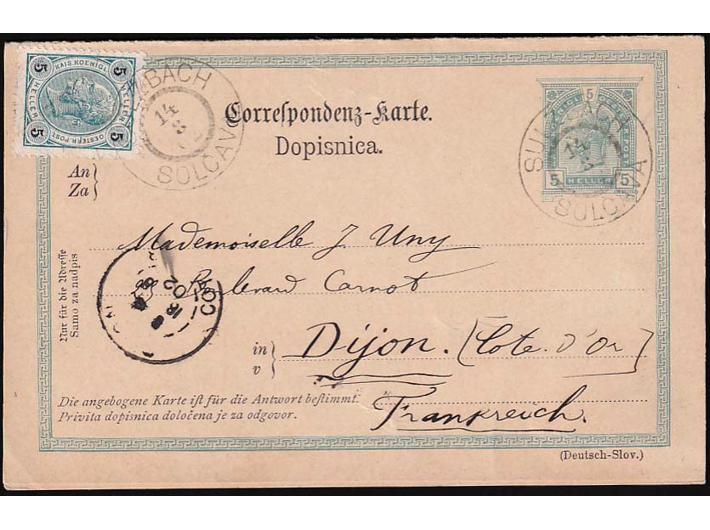 5 KAIS. KOENIGL. 5
HELLER HELLER
5 OESTERR. POST. 5
SULZBACH
14
8
SOLČAVA
Correſpondenz-Karte.
Dopisnica.
5
5 HELLER 5
SULZBACH
14
8
SOLČAVA
An
Za
Nur für die Adreſſe
Samo za nadpis
Mademoiselle J Uny
Boulevard Carnot
in
v
Dijon. (Cote d'Or)
Frankreich.
16
02
Die angebogene Karte iſt für die Antwort beſtimmt.
Privita dopisnica določena je za odgovor.
(Deutsch-Slov.)